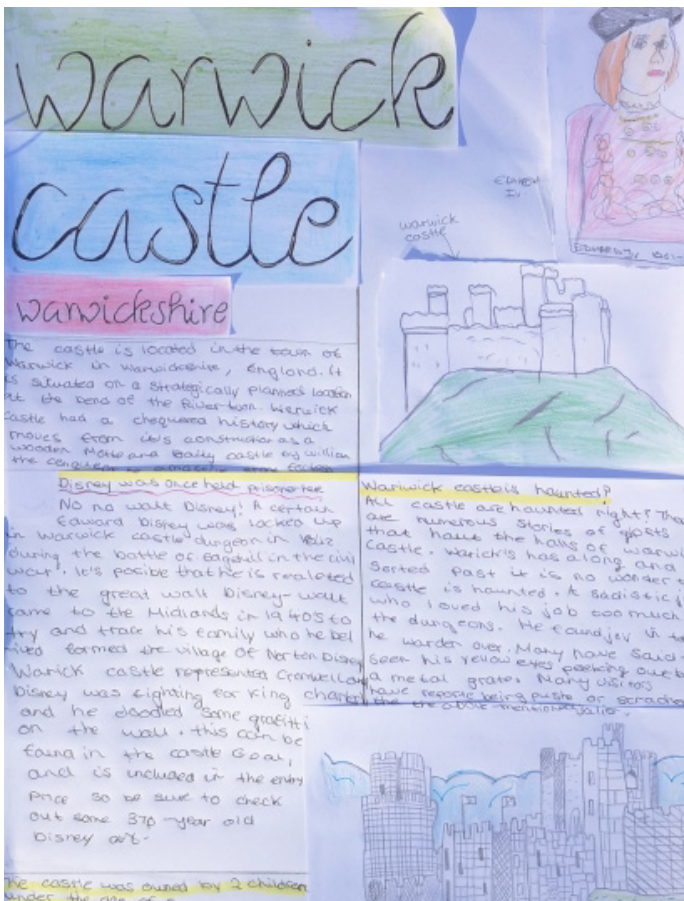 warwick
castle
warwickshire
warwick
castle
EDWARD IV
The castle is located in the town of
Warwick in Warwickshire, England. It
is situated on a strategically planned location
at the bend of the River
castle had a chequered history which
moves from its construction as a
wooden Motte and Baily castle by william
the
Disney was once held
No no walt Disney! A certain
Edward Disney was locked up
in Warwick castle dungeon in
during the battle of in the civil
war! It's posible that he is realated
to the great walt Disney- walt
came to the Midlands in 1940's to
try and trace his family who he bel
formed the village of Norton Disney
Warick castle represented
Disney was fighting for king
and he doodled some
on the wall. this can be
found in the castle Goal,
and is included in the entry
price so be sure to check
out some 370-year old
Disney art.
The castle was owned by 2 children
under the age of
Warwick castle is haunted?
All castle are haunted right? The
are numerous stories of
that haunt the halls of
castle. has a long and
sorted past it is no wonder
castle is haunted. A sadistic
who loved his job too much
the dungeons. He found joy in
he warder over. Many have said
seen his yellow eyes peeking out
a metal grate. Many visitors
have reporte being pushe or
the above mentione